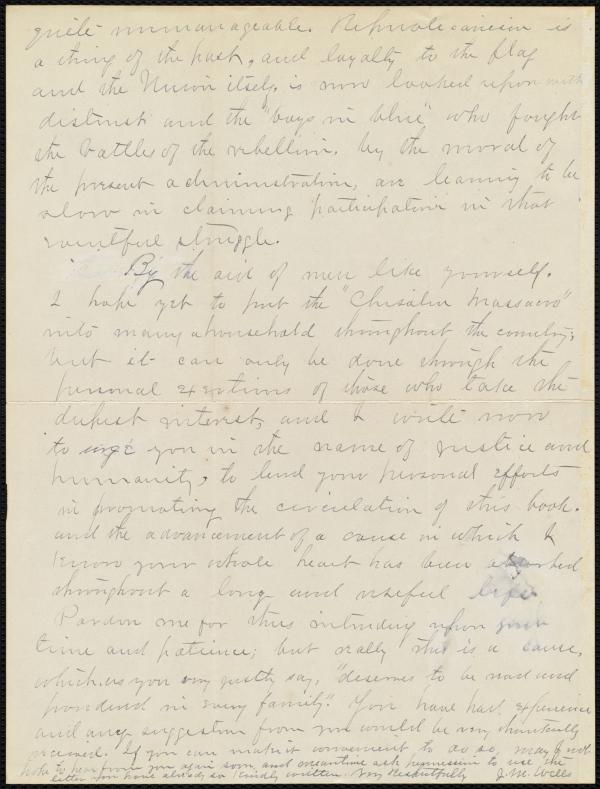 quite unmanageable. Republicanism is
a thing of the past, and loyalty to the flag
and the Union itself, is now looked upon with
distrust and the "boys in blue" who fought
the battles of the rebellion, by the moral of
the present administration, are learning to be
slow in claiming participation in that
eventful struggle.
By the aid of men like yourself.
I hope yet to put the "Chisolm Massacre"
into many a household throughout the country;
but it can only be done through the
personal exertions of those who take the
deepest interest, and I write now
to urge you in the name of justice and
humanity, to lend your personal efforts
in promoting the circulation of this book.
and the advancement of a cause in which I
know your whole heart has been absorbed
throughout a long and useful life.
Pardon me for thus intruding upon your
time and patience; but really this is a cause,
which, as you very justly say, "deserves to be read and
pondered in every family." You have had experience
and any suggestion from you would be very thankfully
received. If you can make it convenient to do so, may I not
hope to hear from you again soon, and meantime ask permission to use the
letter you have already so kindly written. Very Respectfully J. M. Wells